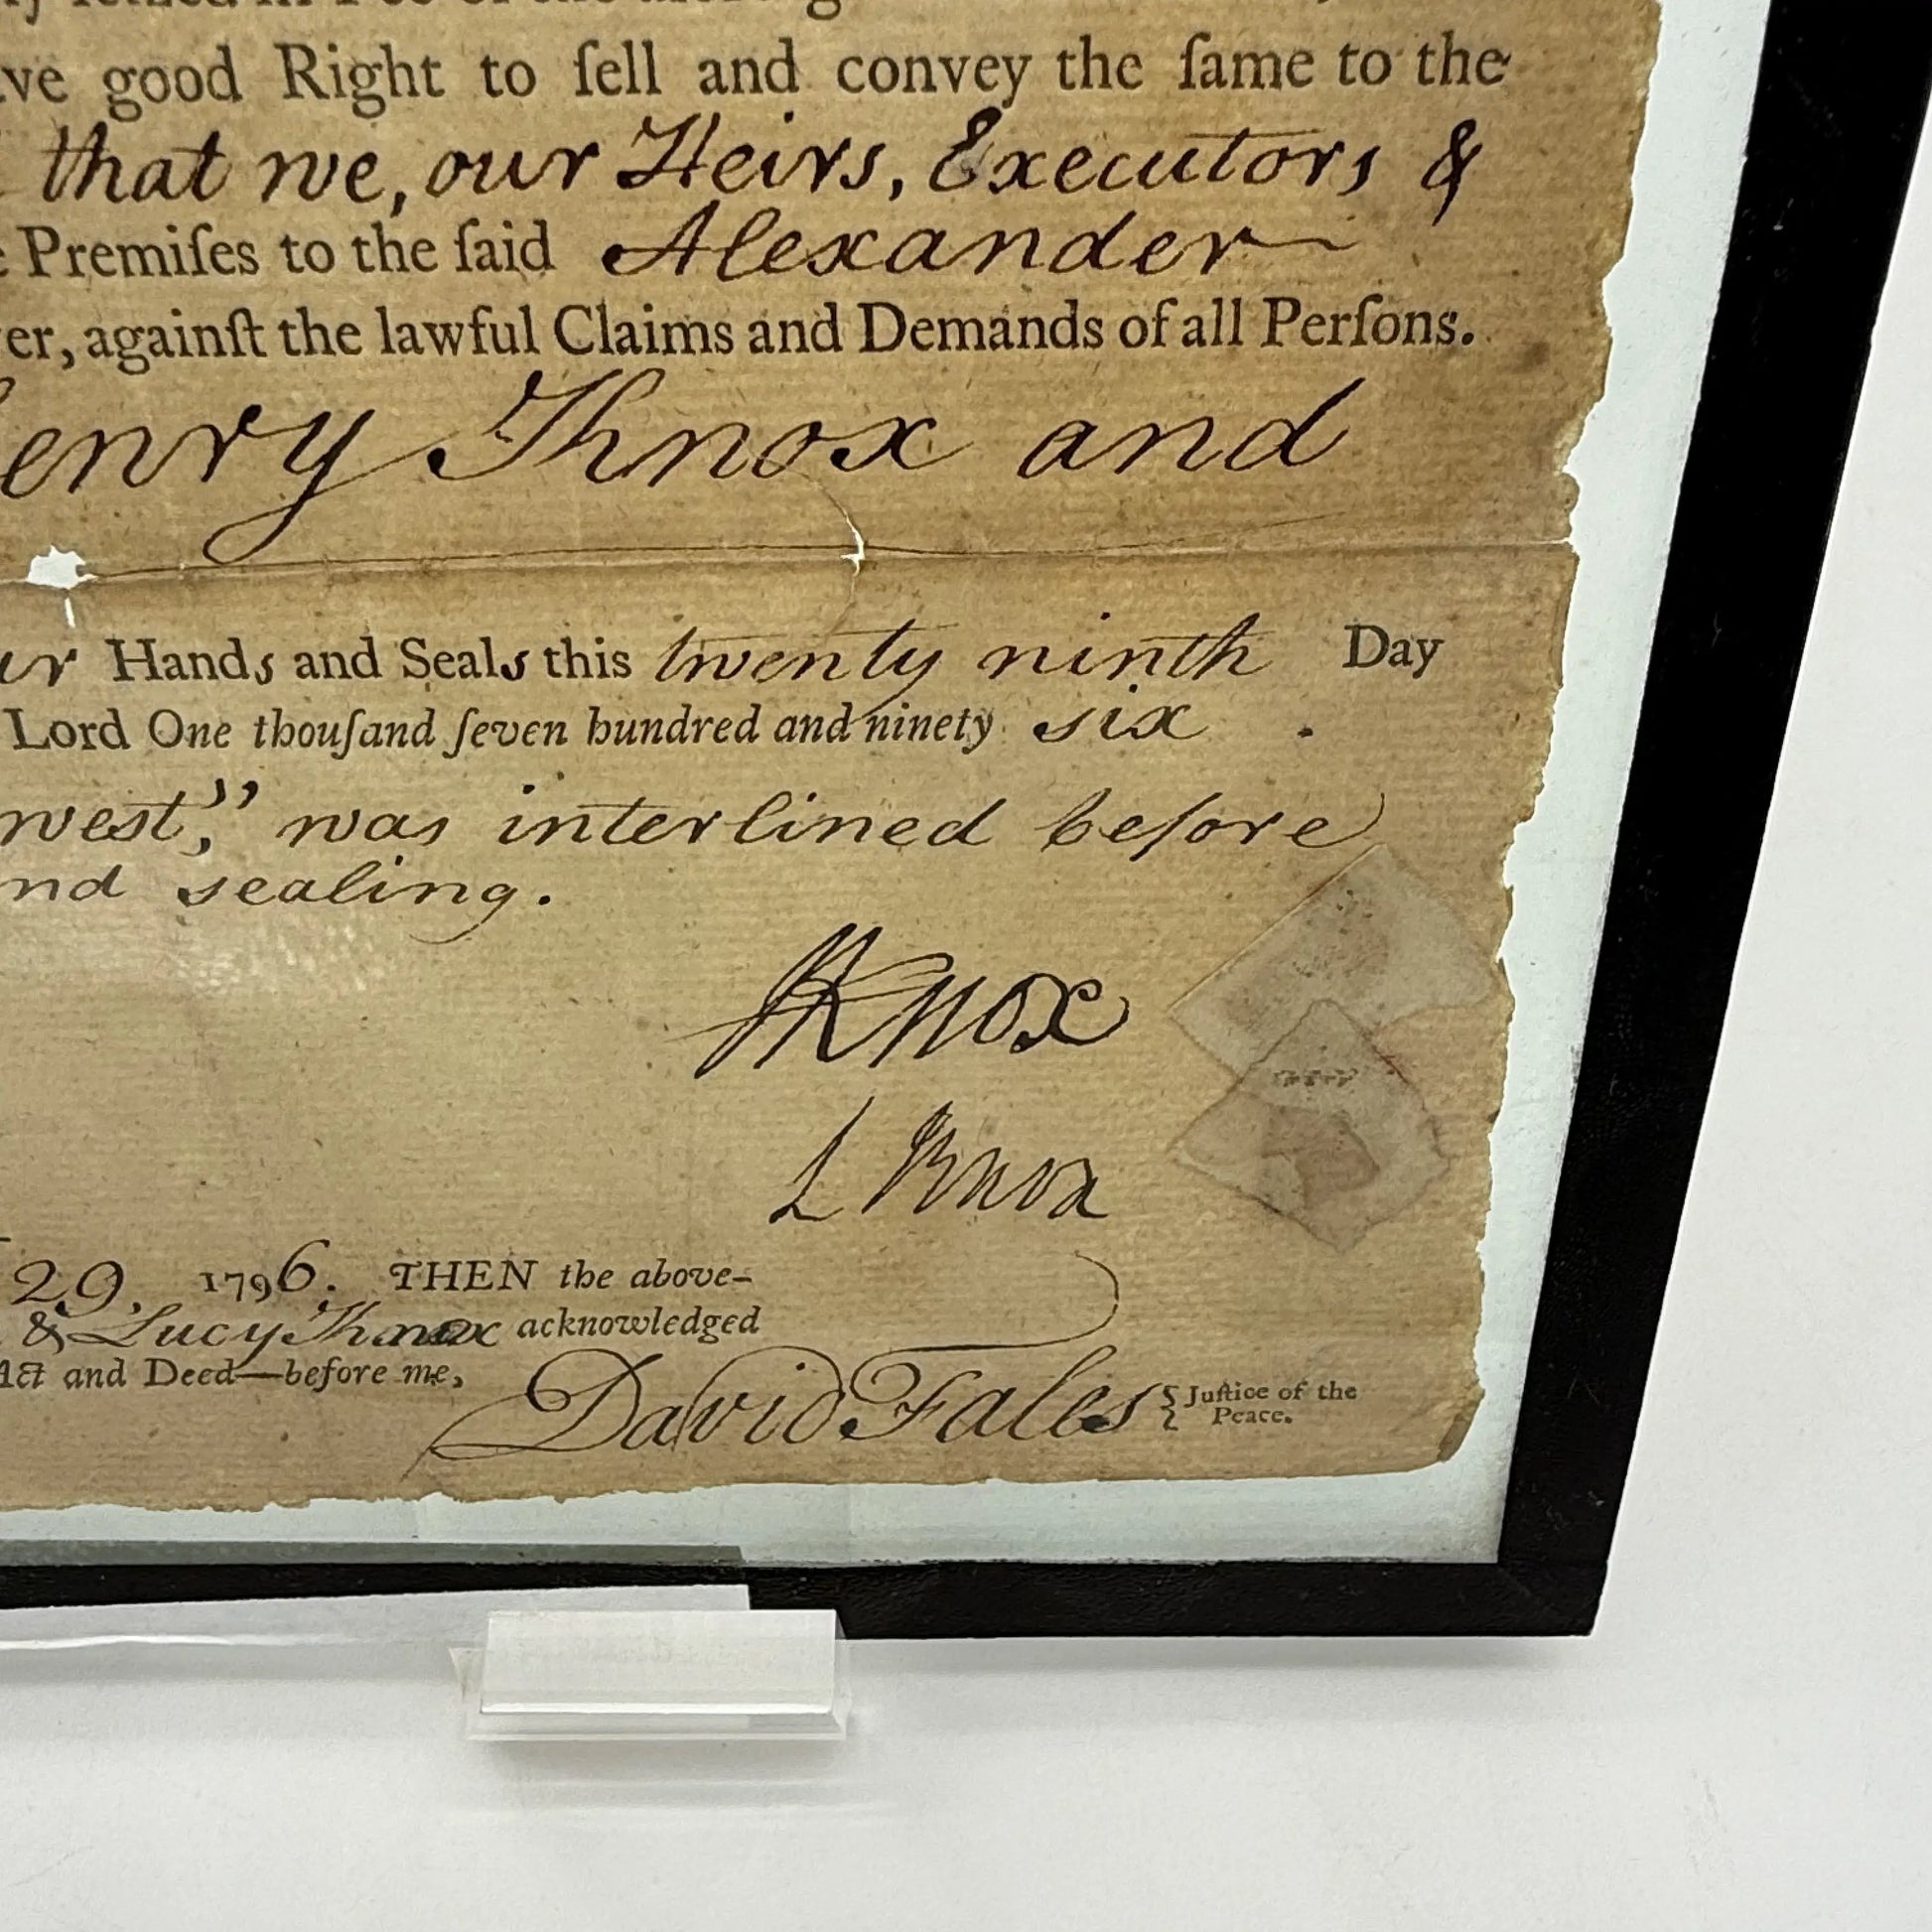 ve good Right to ſell and convey the ſame to the
that we, our Heirs, Executors &
Premiſes to the ſaid Alexander
er, againſt the lawful Claims and Demands of all Perſons.
enry Knox and
ur Hands and Seals this twenty ninth Day
Lord One thouſand ſeven hundred and ninety six .
west," was interlined before
nd sealing.
HKnox
L Knox
29. 1796. THEN the above-
& Lucy Knox acknowledged
Act and Deed—before me,
David Fales { Juſtice of the
Peace.